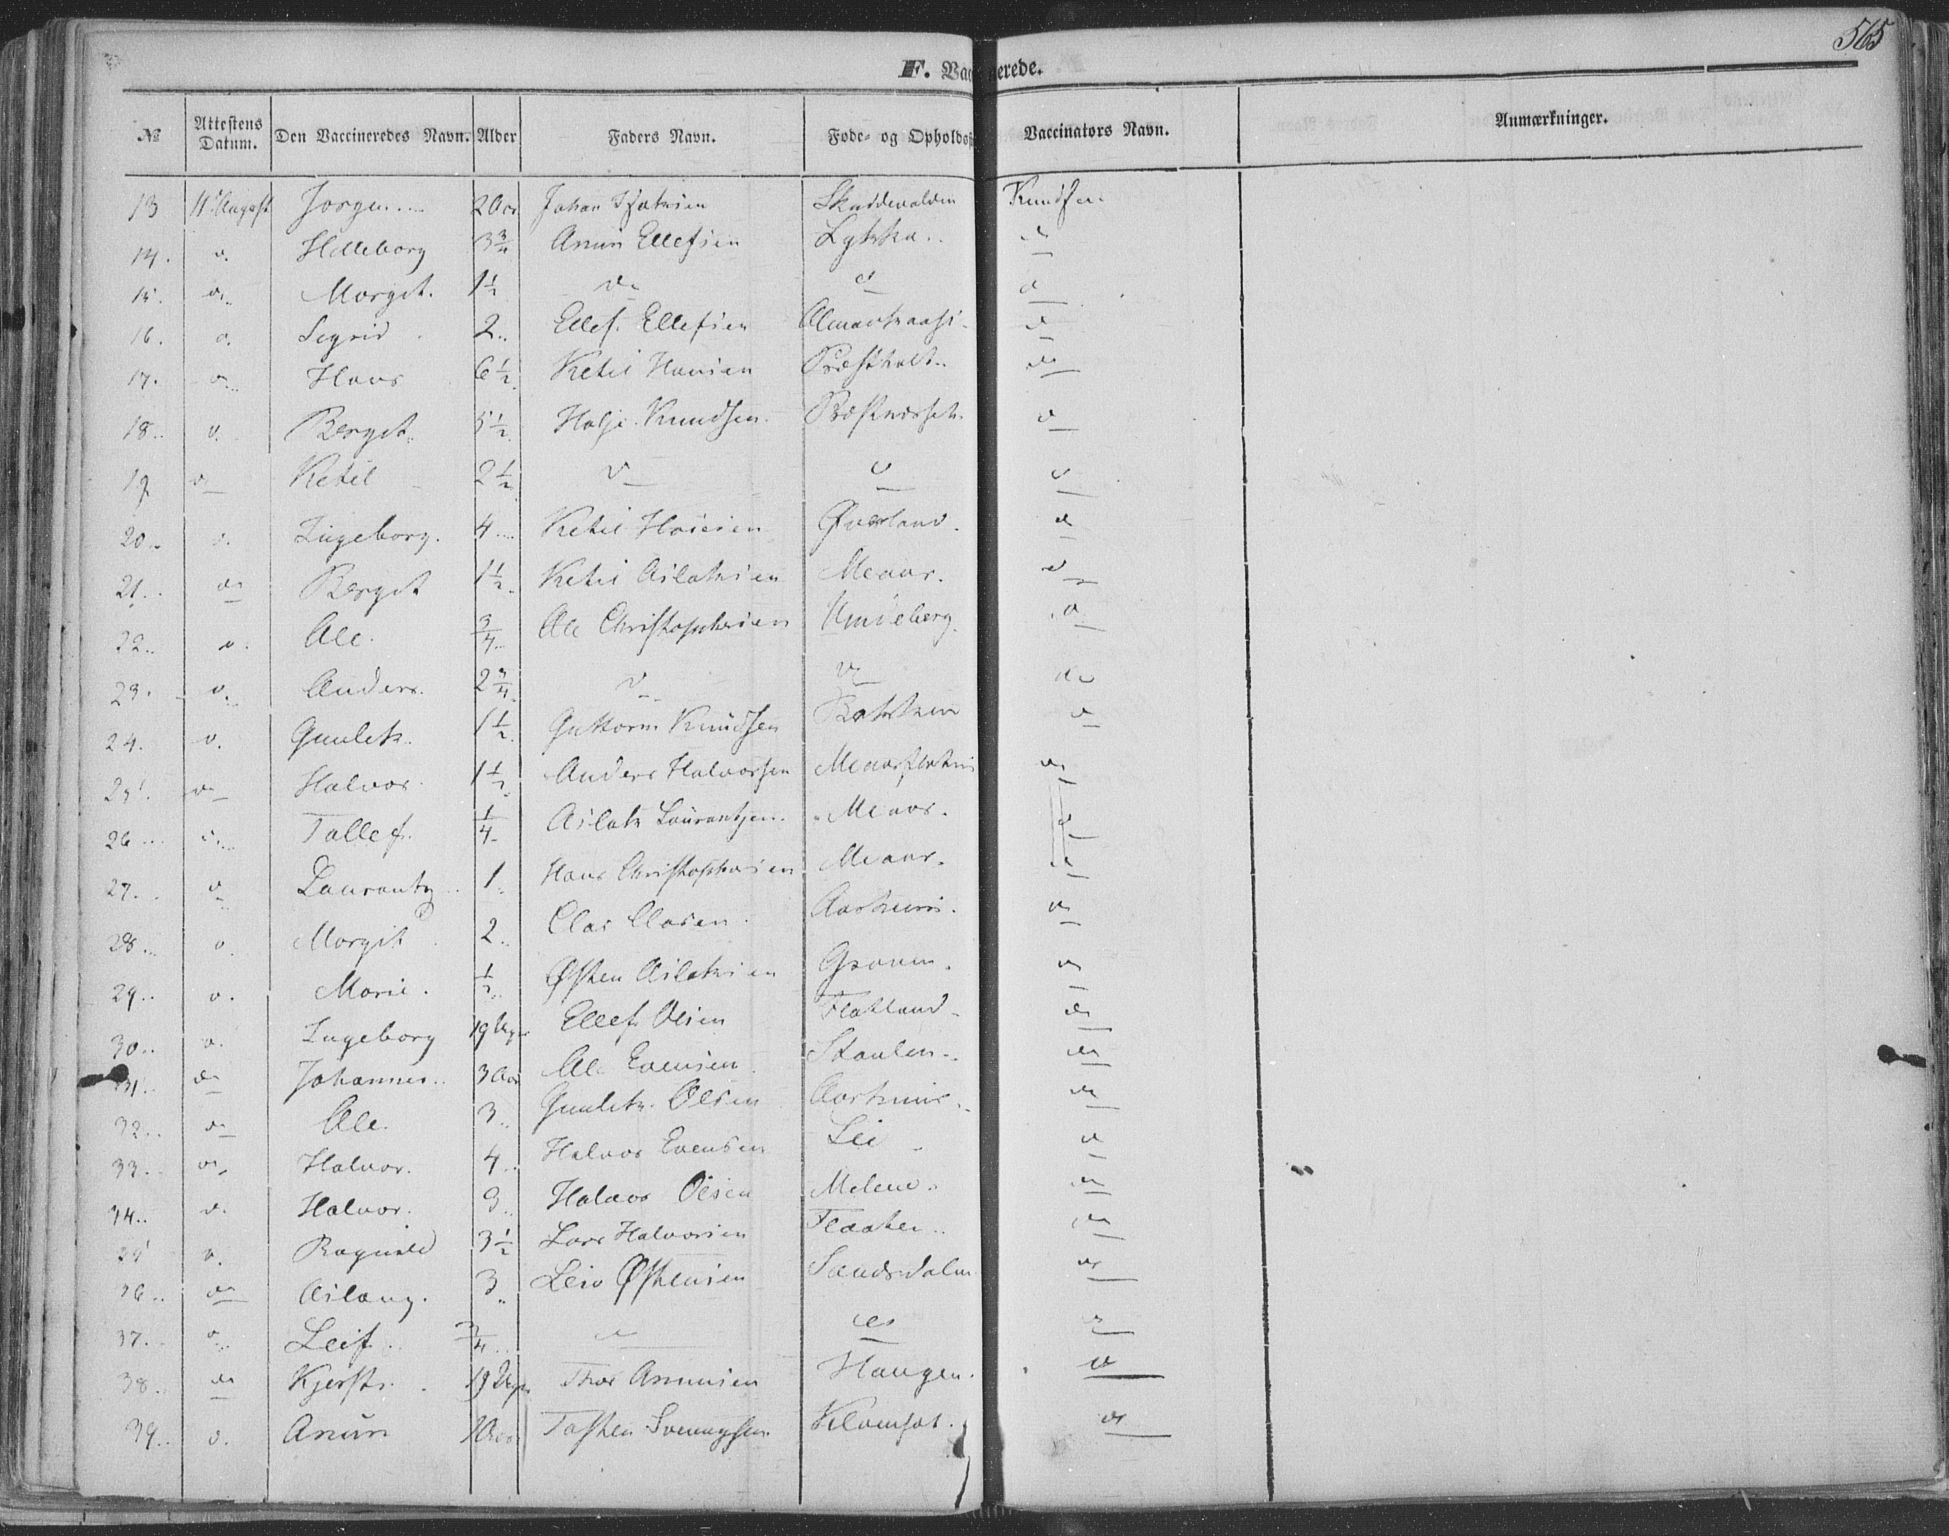 565
F. Vaccinerede.
№ Attestens Datum. Den Vaccineredes Navn. Alder Faders Navn. Føde- og Opholds Vaccinators Navn. Anmærkninger.
13 11 August Jørgen 2 Aar Johan Skuddevolden Knudsen.
14. d. Hælleborg 3 3/4 Anun Ellefsen Lykka. d
15. do Morget. 1 1/2 do d d
16. d. Sigrid 2 Ellef Ellefsen d
17. d Hans 6 1/2 Ketil Hansen Præstholt do
18. d. Berget 5 1/2 Halje Knudsen. d
19 d Ketil 2 1/2 d d d
20. d. Ingeborg. 4 Ketil Øverland. d
21. do Berget 1 1/2 Ketil Aslaksen Meaar. d
22. d. Ole. 3/4 Ole Christophersen Vindeberg. d
23. d. Anders. 2 3/4 d d do
24. d. Gunlek. 1 1/2 Guttorm Knudsen d
25. do Halvor. 1 1/2 Anders Halvorsen do
26. d. Tallef. 1/4 Aslak Laurantsen. Meaar. d
27. d Laurantz 1. Hans Christophersen Meaar. d
28. d. Morgit 2. Clas Clasen. d
29. d. Marie. 1/2 Østen Aslaksen Grovum. d
30. d. Ingeborg 19 Uger Ellef Olsen Flatland do
31. do Johannes. 3 Aar Ole Evensen Staulen do
32. do Ole. 3. Gunlek Olsen do
33. do Halvor. 4. Halvor Evensen Lii d
34. d. Halvor. 3. Halvor Olsen Melend. do
35 d. Rognild 3 1/2 Lars Halvorsen Flaaten do
36. do Aslaug. 3 Leiv Østensen Sandsdalen do
37. d. Leif. 3/4 do d
38. do Kjersti. 19 Uger Thor Anunsen Haugen. d
39. d. Anun Aar Tosten Svennugsen do